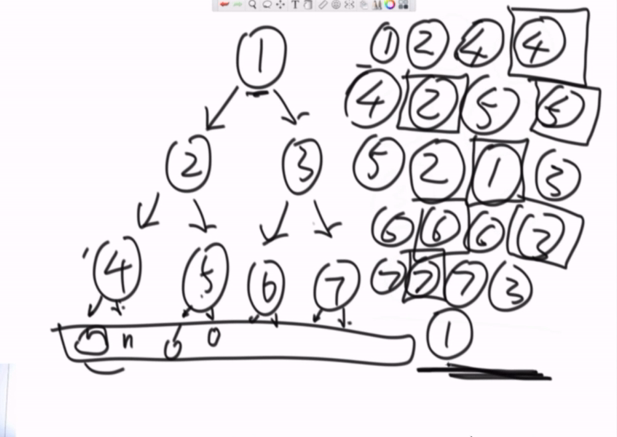 1
2 3
4 5 6 7
n 0
1 2 4 4
4 2 5 5
5 2 1 3
6 6 6 2
7 7 7 3
1